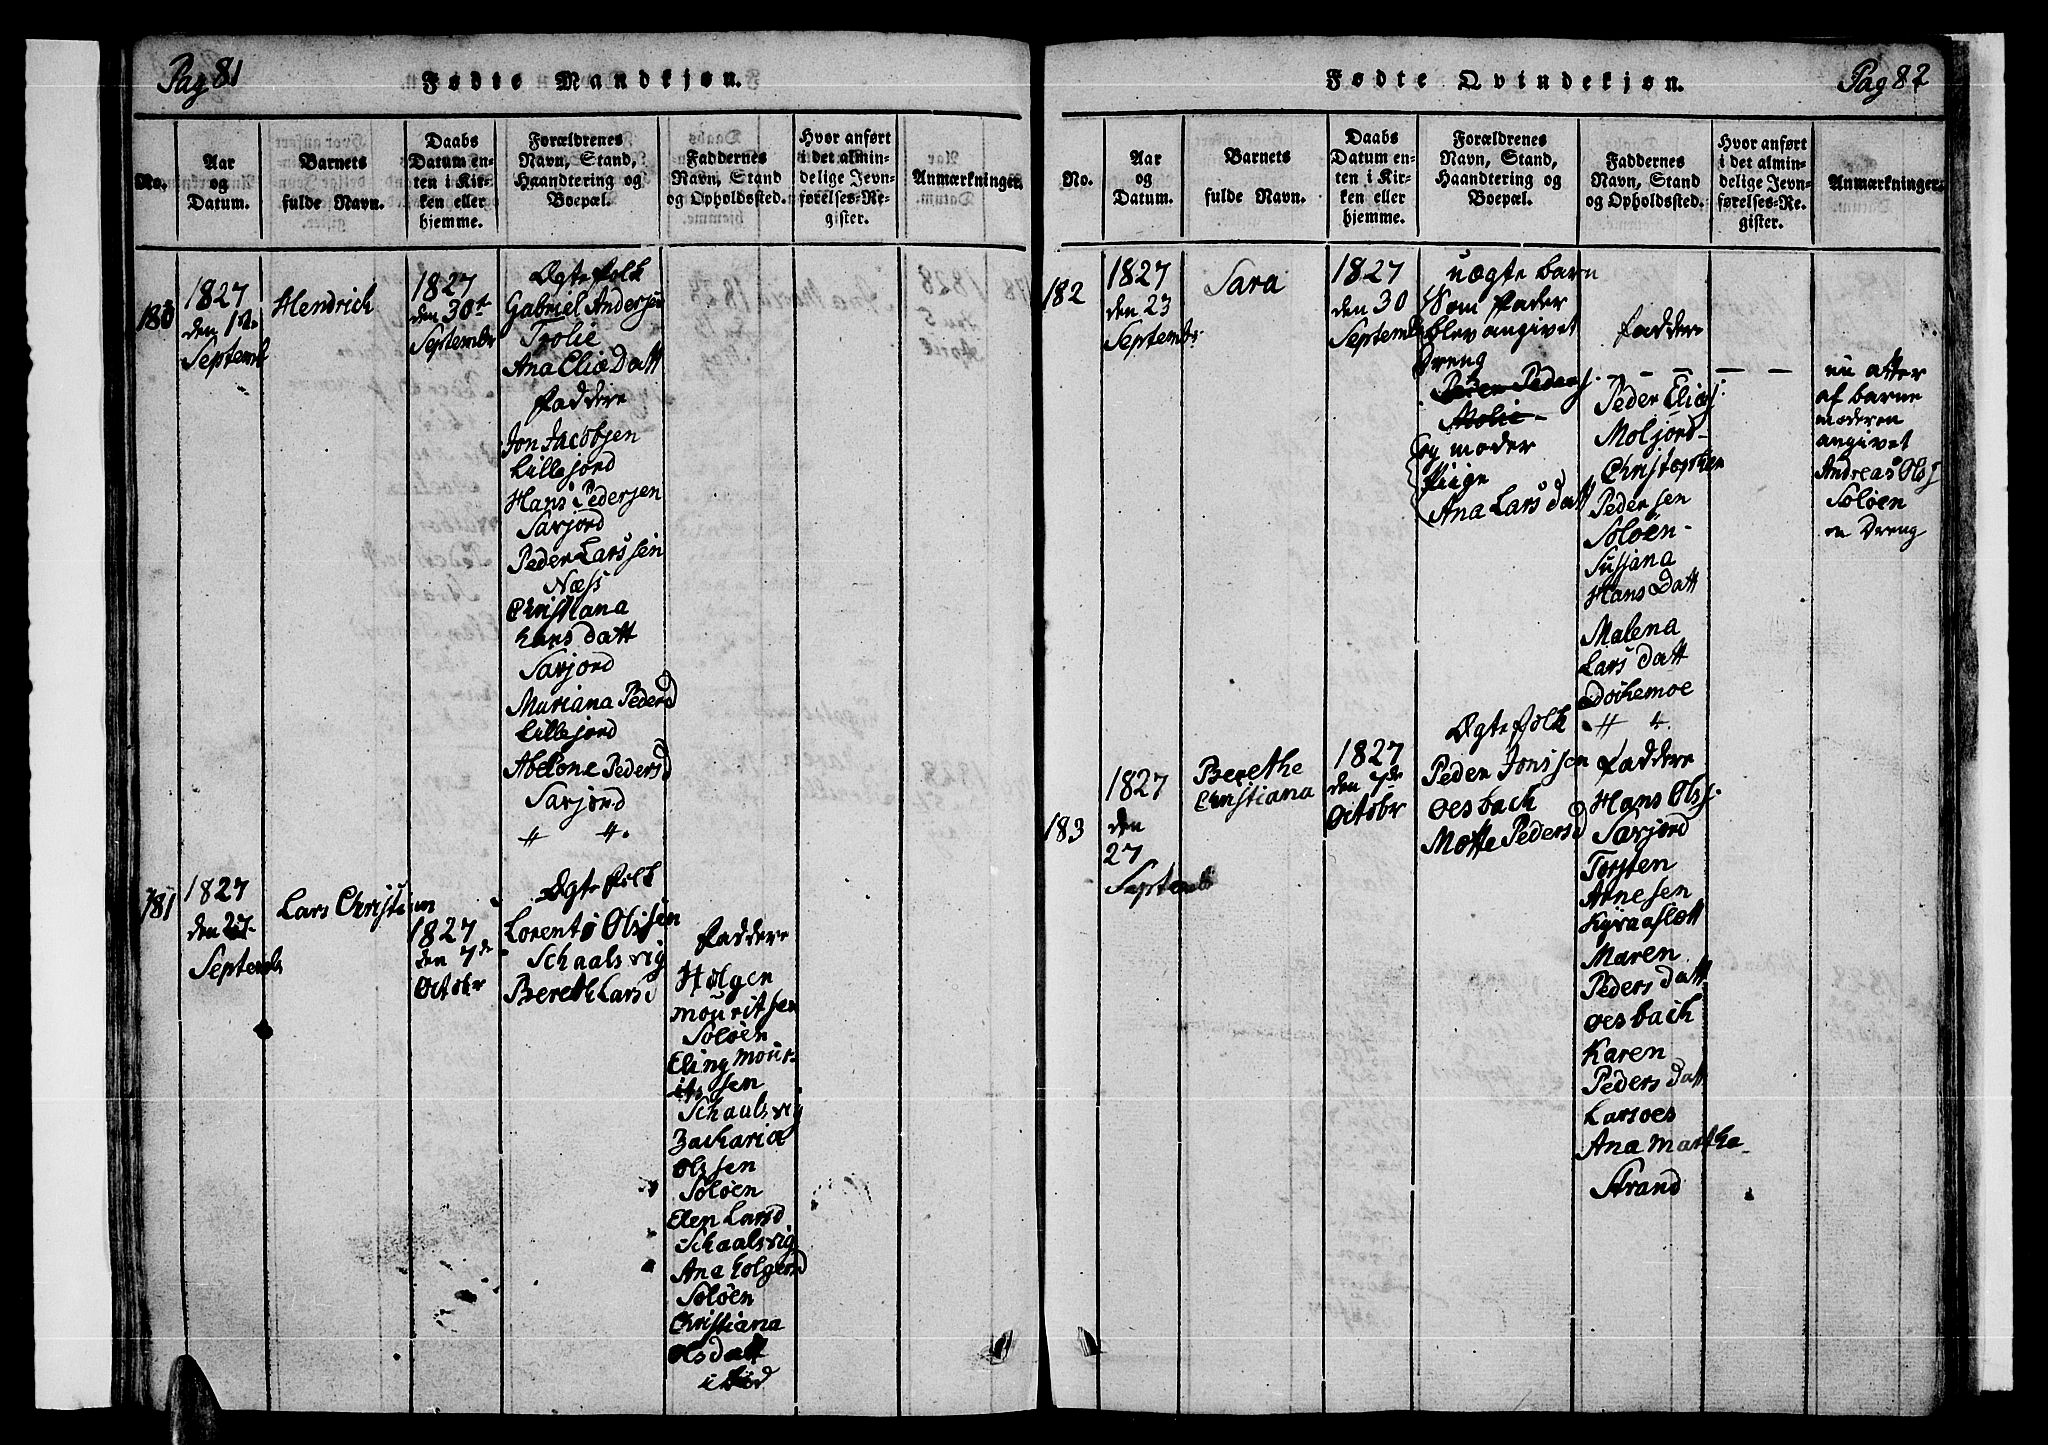 Pag 81
Fødte Mandkjøn.
No.
Aar
og
Datum.
Barnets
fulde Navn.
Daabs
Datum en-
ten i Kir-
ken eller
hjemme.
Forældrenes
Navn, Stand,
Haandtering og
Boepæl.
Faddernes
Navn, Stand
og Opholdssted.
Hvor anført
i det almin-
delige Jevn-
førelses-Re-
gister.
Anmærkninger.
180
1827
den 1ste
Septemb
Hendrich
1827
den 30te
Septembr
Ægte folk
Gabriel Andersen
Trolie
Ana Eliæ Datt
faddere
Jon Jacobsen
Lillejord
Hans Pedersen
Sarjord
Peder Larssen
Næss
Christiana
Lars datt
Sarjord
Mariana Pedersd
Lillejord
Abelone Pedersd
Sarjord
〃 〃
181
1827
den 27
Septemb
Lars Christian
1827
den 7de
Octobr
Ægte folk
Lorents Olssen
Schaalsvig
Bereth Larsd
faddere
Holger
Mouritsen
Soløen
Eling Mour-
itssen
Schaalsvig
Zacharia
Olssen
Soløen
Elen Larsd
Schaalsvig
Ana Holgersd
Soløen
Christiana
Olsdatt
Pag 82
Fødte Qvindekjøn.
No.
Aar
og
Datum.
Barnets
fulde Navn.
Daabs
Datum en-
ten i Kir-
ken eller
hjemme.
Forældrenes
Navn, Stand,
Haandtering og
Boepæl.
Faddernes
Navn, Stand
og Opholdssted.
Hvor anført
i det almin-
delige Jevn-
førelses-Re-
gister.
Anmærkninger.
182
1827
den 23
Septembr
Sara
1827
den 30
Septembr
uægte barn
som fader
blev angivet
Dreng
Peder Pedersen
Molie
og moder
Piige
Ana Lars datt
faddere
Peder Eliæs.
Moljord
Christopher
Pedersen
Soløen
Sussana
Hans Datt
Malena
Lars datt
Dochemoe
〃 〃
nu atter
af barne
moderen
angivet
Andreas Ols
Soløen
en Dreng
183
1827
den
27
Septemb
Berethe
Christiana
1827
den 7de
Octobr
Ægte folk
Peder Jonssen
Oesbach
Mette Pedersd
faddere
Hans Olss.
Sarjord
Torsten
Arnesen
Kyraaslett
Maren
Peders datt
Oesbach
Karen
Peders datt
Larsoes
Ana Marthe
Strand